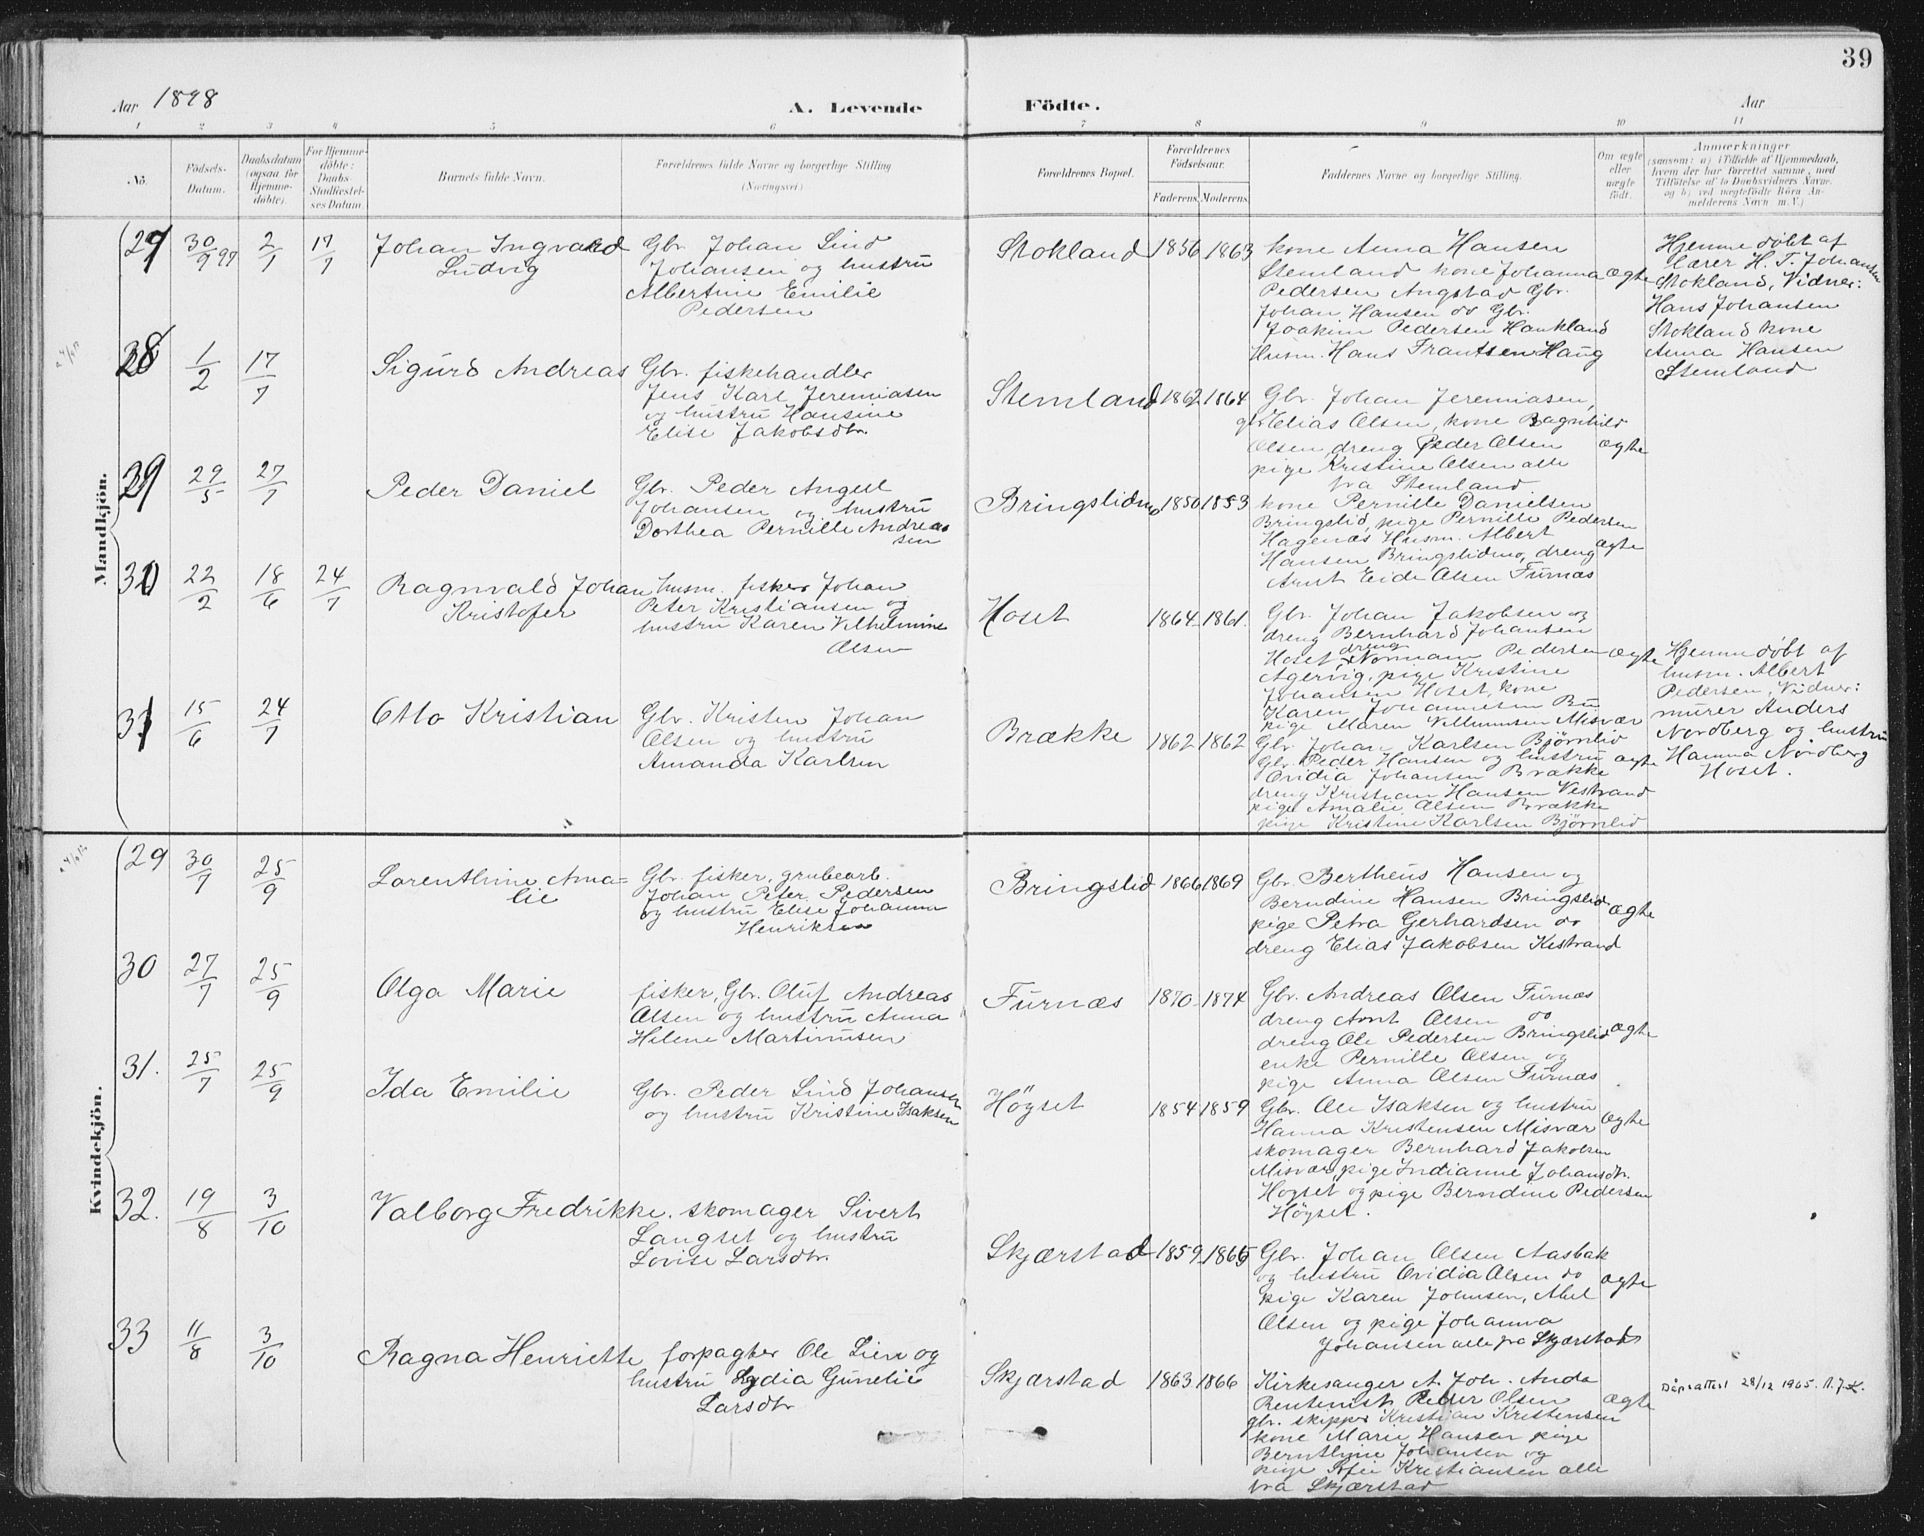 39
Aar 1898
A. Levende Födte.
Aar
1 2 3 4 5 6 7 8 9 10 11
No.
Födsels-Datum.
Daabsdatum (ogsaa for Hjemme-döbte).
For Hjemme-döbte: Daabs-Stadfæstel-ses Datum.
Barnets fulde Navn.
Forældrenes fulde Navne og borgerlige Stilling (Næringsvei).
Forældrenes Bopæl.
Forældrenes Födselsaar.
Faderens. Moderens.
Faddernes Navne og borgerlige Stilling.
Om ægte eller uægte födt.
Anmærkninger
(saasom: a) i Tilfælde af Hjemmedaab,
hvem der har forrettet samme, med
Tilföielse af to Daabsvidners Navne,
og b) ved uægtefödte Börn An-
melderens Navn m. V.)
Mandkjön.
27 30/9 97 2/1 17/7
Johan Ingvald
Ludvig
Gbr. Johan Lind
Johansen og hustru
Albertine Emilie
Pedersen
Stokland 1856 1863
kone Anna Hansen
Stemland kone Johanna
Pedersen Angstad Gbr.
Johan Hansen do Gbr.
Joakim Pedersen Haukland
Husm. Hans Frantsen Haug
ægte
Hjemmedöbt af
lærer H. T. Johansen
Stokland, Vidner:
Hans Johansen
Stokland kone
Anna Hansen
Stemland
28 1/2 17/7
Sigurd Andreas
Gbr. fiskehandler
Jens Karl Jeremiasen
og hustru Hansine
Elise Jakobsdtr.
Stemland 1862 1864
Gbr. Johan Jeremiasen,
gbr Elias Olsen, kone Ragnhild
Olsen, dreng Peder Olsen
pige Kristine Olsen alle
fra Stemland
ægte
29 29/5 27/7
Peder Daniel
Gbr. Peder Angell
Johansen og hustru
Dorthea Pernille Andrea
sen
Bringslidmo 1850 1853
kone Pernille Danielsen
Bringslid, pige Pernille Pedersen
Hagenæs Husm. Albert
Hansen Bringslidmo, dreng
Arnt Eide Olsen Furnæs
ægte
30 22/2 18/6 24/7
Ragnvald Johan
Kristofer
husm. fisker Johan
Peter Kristiansen og
hustru Karen Vilhelmine
Olsen
Hoset 1864 1861
Gbr. Johan Jakobsen og
dreng Bernhard Johansen
Hoset, dreng Normann Pedersen
Agervig, pige Kristine
Johansen Hoset, kone
Karen Johannesen Bu
pige Maren Villumsen Misvær
ægte
Hjemmedöbt af
husm. Albert
Pedersen, Vidner:
murer Anders
Nordberg og hustru
Hanna Nordberg
Hoset.
31 15/6 24/7
Otto Kristian
Gbr. Kristen Johan
Olsen og hustru
Amanda Karlsen
Brække 1862 1862
Gbr. Johan Karlsen Bjørnlid
Gbr. Peder Hansen og hustru
Ovidia Johansen Brække
dreng Kristian Hansen Vestvand
pige Amalie Olsen Brække
pige Kristine Karlsen Bjørnlid
ægte
Kvindekjön.
29 30/7 25/9
Lorenthine Ama=
lie
Gbr. fisker, grubearb.
Johan Peter Pedersen
og hustru Elise Johanna
Henriksen
Bringslid 1866 1869
Gbr. Bertheus Hansen og
Berndine Hansen Bringslid
pige Petra Gerhardsen do
dreng Elias Jakobsen Kistrand
ægte
30 27/7 25/9
Olga Marie
fisker, Gbr. Oluf Andreas
Olsen og hustru Anna
Helene Martinusen
Furnæs 1870 1874
Gbr. Andreas Olsen Furnæs
dreng Arnt Olsen do
dreng Ole Pedersen Bringslid
enke Pernille Olsen og
pige Anna Olsen Furnæs
ægte
31. 25/7 25/9
Ida Emilie
Gbr. Peder Lind Johansen
og hustru Kristine Isaksen
Höyset 1854 1859
Gbr. Ole Isaksen og hustru
Hanna Kristensen Misvær
skomager Bernhard Jakobsen
Misvær, pige Indianne Johansdtr.
Höyset og pige Berndine Pedersen
Höyset.
ægte
32. 19/8 3/10
Valborg Fredrikke.
skomager Sivert
Langset og hustru
Lovise Larsdtr.
Skjærstad 1859 1865
Gbr. Johan Olsen Aasbak
og hustru Ovidia Olsen do
pige Karen Johnsen, Abel
Olsen og pige Johanna
Johansen alle fra Skjærstad
ægte
33 11/8 3/10
Ragna Henriette
forpagter Ole Lien og
hustru Lydia Gunelie
Larsdtr
Skjærstad 1863 1866
Kirkesanger A. Joh. Anda
Rentenist Peder Olsen
gbr. skipper Kristian Kristensen
kone Marie Hansen pige
Bernthine Johansen og
pige Sofie Kristiansen alle
fra Skjærstad
ægte
Dåpsattest 28/12 1965.